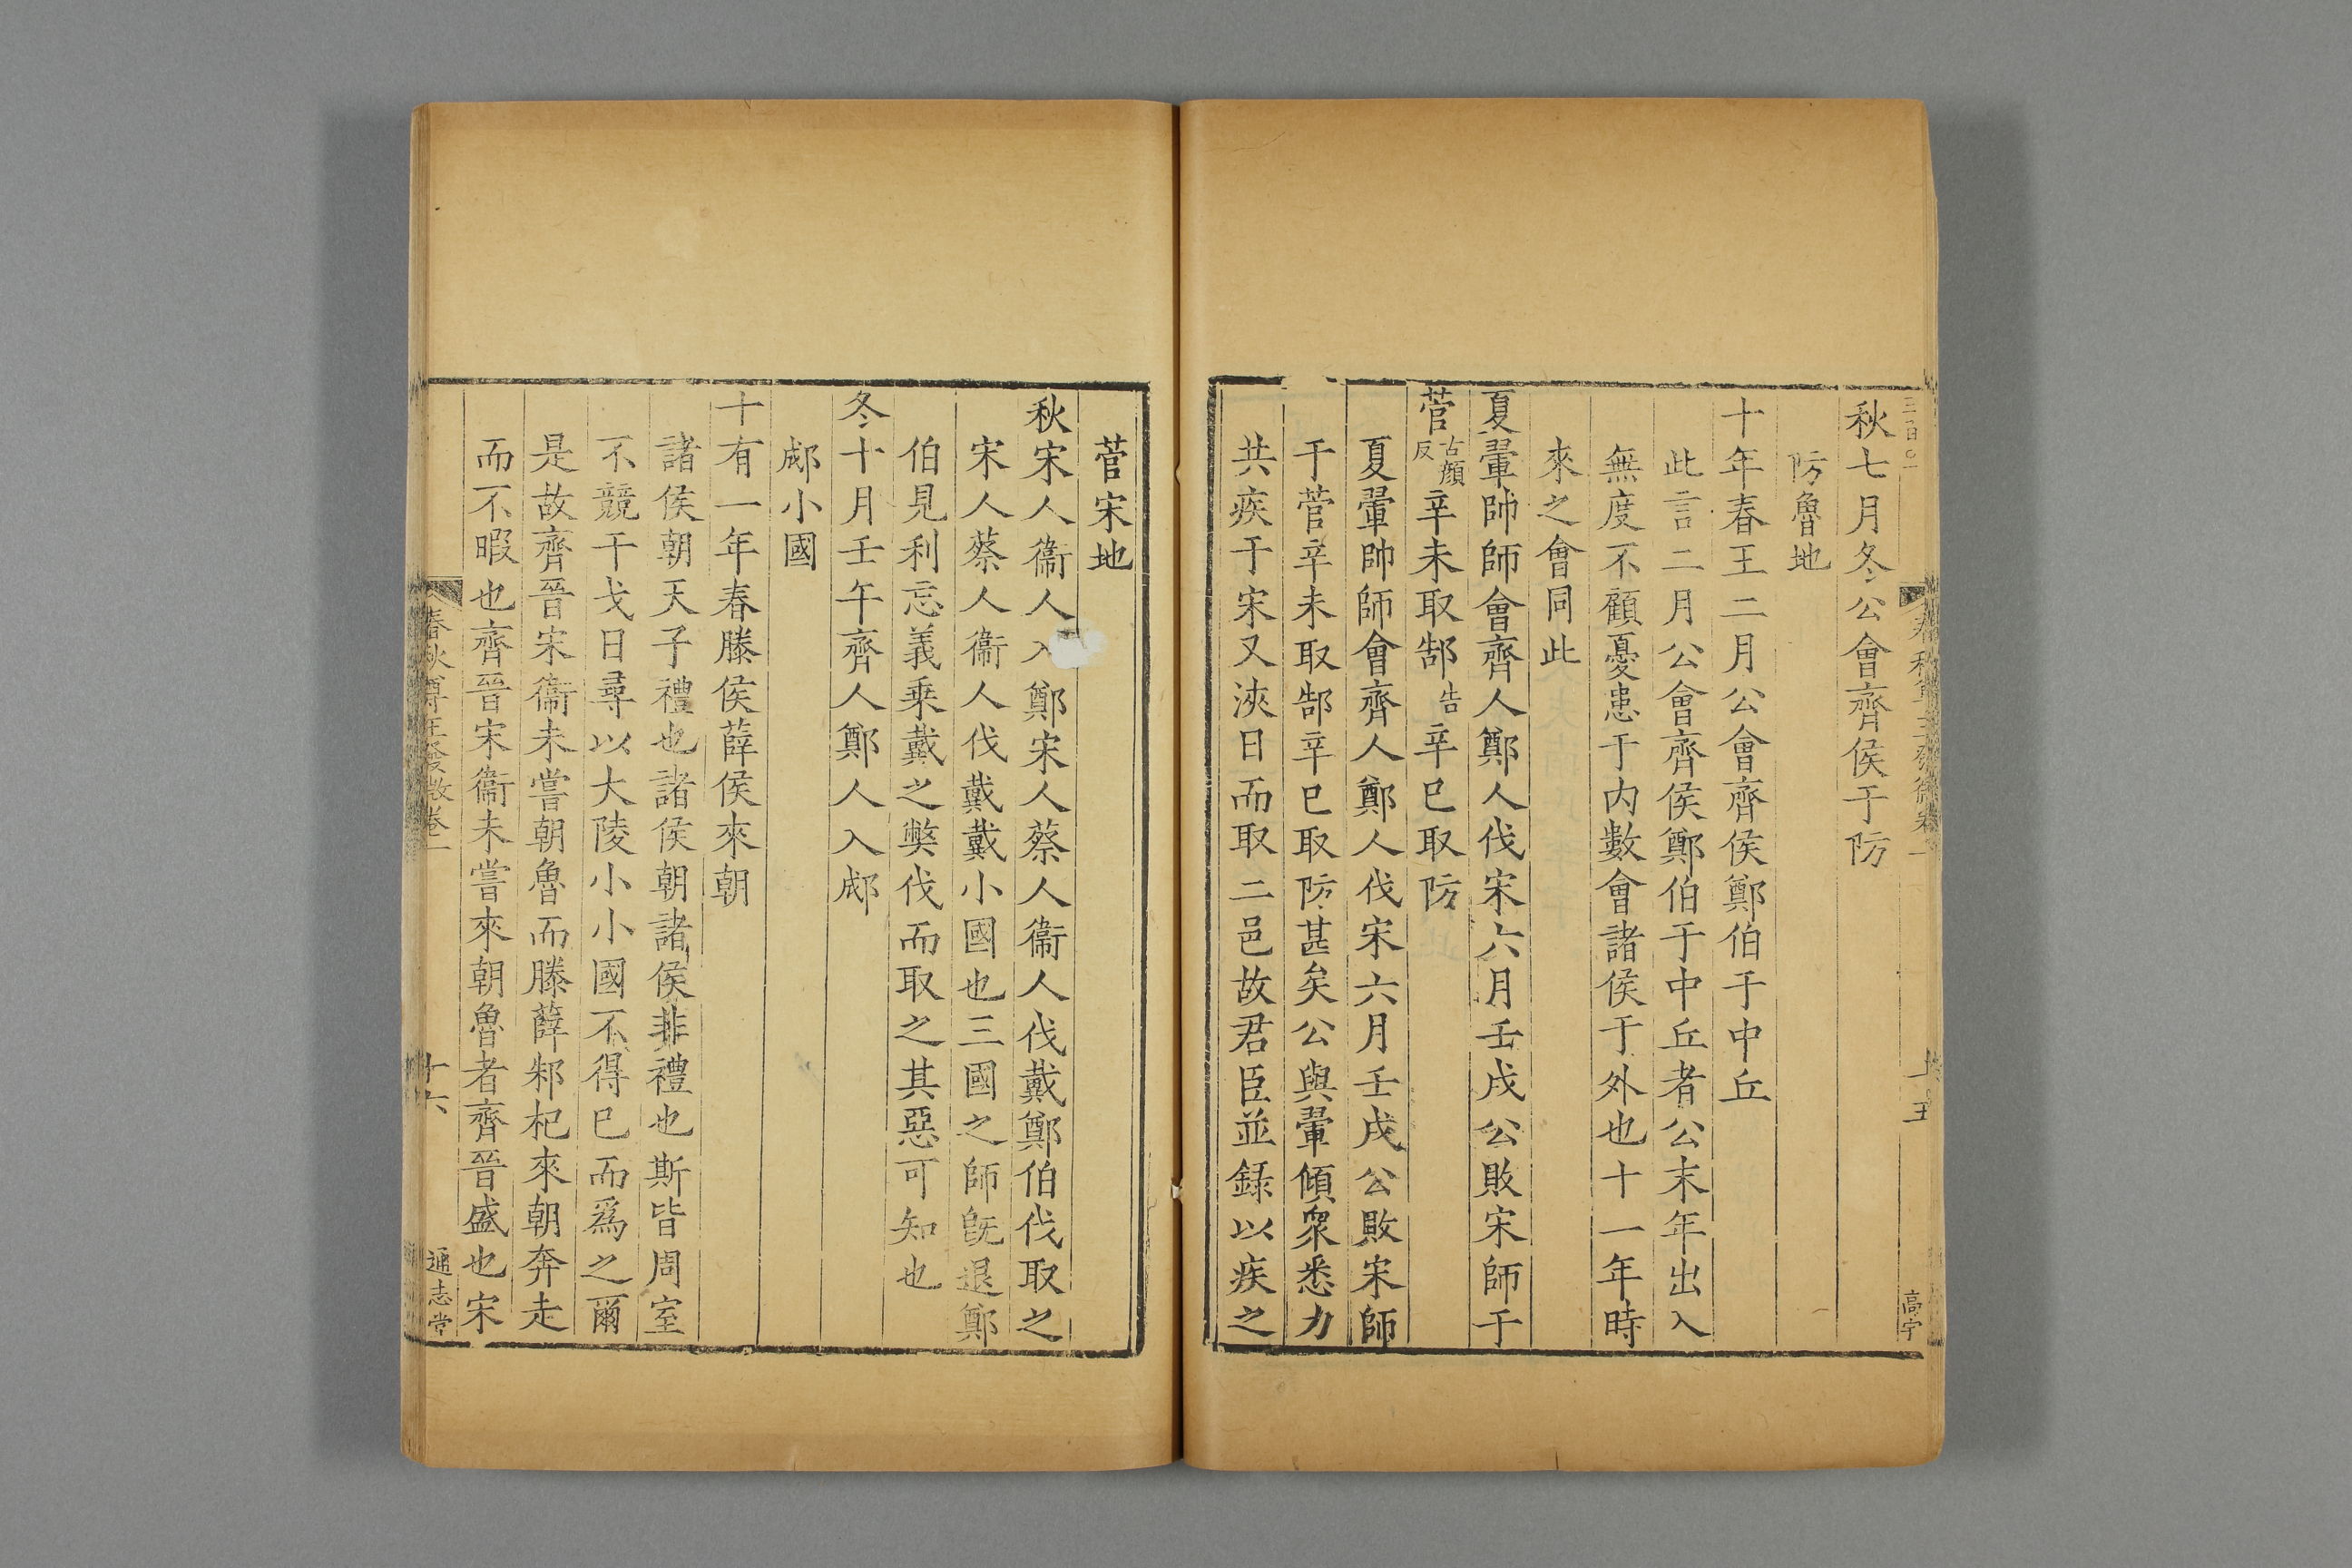 秋七月冬公會齊侯于防
防魯地
十年春王二月公會齊侯鄭伯于中丘
此言二月公會齊侯鄭伯于中丘者公末年出入
無度不顧憂患于內數會諸侯于外也十一年時
來之會同此
夏翬帥師會齊人鄭人伐宋六月壬戌公敗宋師于
菅古顔反辛未取郜告辛巳取防
夏翬帥師會齊人鄭人伐宋六月壬戌公敗宋師
于菅辛未取郜辛巳取防甚矣公與翬傾衆悉力
共疾于宋又浹日而取二邑故君臣並録以疾之
高宇
菅宋地
秋宋人衞人入鄭宋人蔡人衞人伐戴鄭伯伐取之
宋人蔡人衞人伐戴戴小國也三國之師旣退鄭
伯見利忘義乗戴之獘伐而取之其惡可知也
冬十月壬午齊人鄭人入郕
郕小國
十有一年春滕侯薛侯來朝
諸侯朝天子禮也諸侯朝諸侯非禮也斯皆周室
不競干戈日尋以大陵小小國不得已而爲之爾
是故齊晉宋衞未嘗朝魯而滕薛邾杞來朝奔走
而不暇也齊晉宋衞未嘗來朝魯者齊晉盛也宋
春秋尊王發微卷一
十六
通志堂